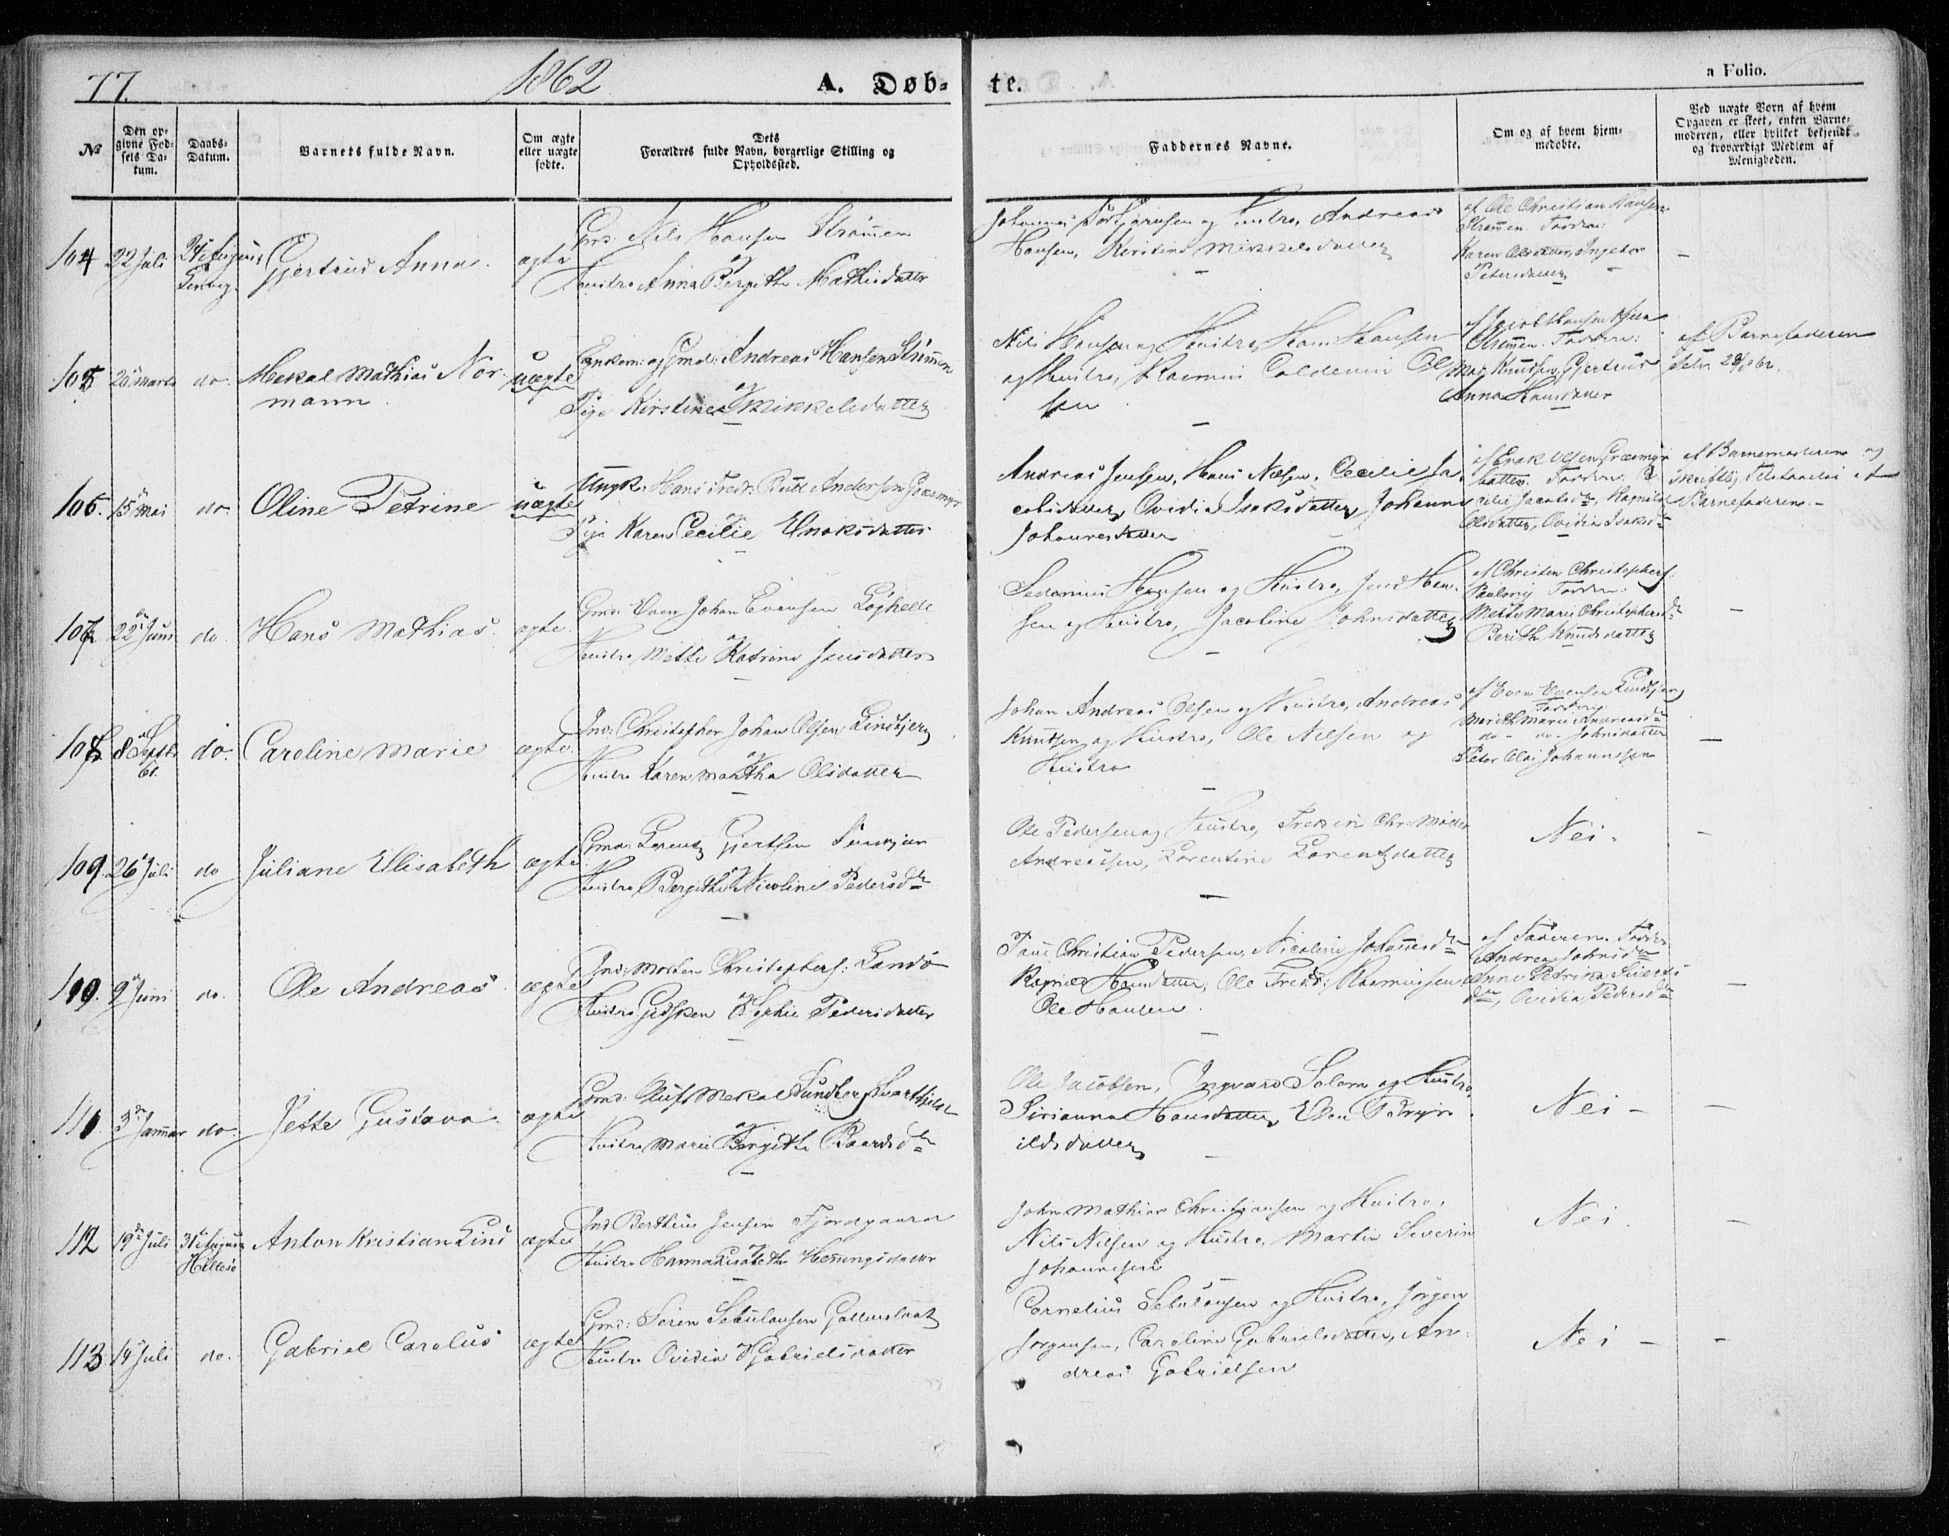 77.
1862
A. Døb-
te.
a Folio.
No
Den op-
givne Fød-
sels Da-
tum.
Daabs-
Datum.
Barnets fulde Navn.
Om ægte
eller uægte
fødte.
Dets
Forældres fulde Navn, borgerlige Stilling og
Opholdssted.
Faddernes Navne.
Om og af hvem hjem-
medøbte.
Ved uægte Børn af hvem
Opgaven er skeet, enten Barne-
moderen, eller hvilket bekjendt
og troværdigt Medlem af
Menigheden.
104
22 Juli
24 August
Gjertrud Anna
ægte
Gmd: Nils Hansen Strømmen
og
Hustro Anna Bergithe Mathisdatter
Johannes og Hustro, Andreas
Hansen, Kirstine Mikkelsdatter
af Ole Christian Hansen
Strømmen. Faddere:
Karen Olsdatter, Ingebor
Petersdatter
-
105
20 Marts
do.
Mekal Mathias Nor-
mann
uægte
Enkem: og Gmd: Andreas Hansen Strømmen
og
Pige Kirstine Mikkelsdatter
Nils Hansen og Hustro, Hans Hansen
og Hustro, Rasmus Ol
sen
af Jacob Hansen
Strømmen. Faddere:
Mar. Knudsen, Gjertrud
Anna Hansdatter
af Barnefaderen
106.
15 Mai
do.
Oline Petrine
uægte
Ungk: Hans Fredr: Rud Andersen Græsmyr
og
Pige Karen Cecilie Enoksdatter
Andreas Jensen, Hans Nilsen, Cecilie Ja-
cobsdatter, Ovidia Isaksdatter, Johanna
Johannesdatter
af Enok Olsen Græsmyr
Faddere:
cilie Jacobsdr, Ragnild
Olsdatter, Ovidia Isaksdr
af Barnemoderen og
skriftlig Tilstaaelse af
Barnefaderen. -
107
22 Juni
do.
Hans Mathias
ægte
Gmd: Even Johan Evensen Løghelle
og
Hustro Mette Katrine Jensdatter
Hansen og Hustro, Jens Han-
sen og Hustro, Jacoline Johnsdatter
af Christen Christophers:
Faddere:
Mette Marie Christophersdr
Berith Knudsdatter
-
108
8 Septbr
61.
do.
Caroline Marie
ægte
Ind: Christopher Johan Olsen Lindbjerg
og
Hustro Karen Martha Olsdatter
Johan Andreas Olsen og Hustro, Andreas
Knudsen og Hustro, Ole Nilsen og
Hustro
af Even Evensen Lindbjerg
Faddere:
Marith Marie Andreasdr
do - do - Johnsdatter
Peter Olai Johannessen
-
109
26 Juli
do
Juliane Ellisabeth
ægte
Gmd: Lorentz Gjertsen
og
Hustro Bergithe Nicoline Pedersdr
Ole Pedersen og Hustro, Fredrik Chr. Møller
Andreassen, Lorentine Lorentzdatter
Nei -
-
110.
9 Juni
do.
Ole Andreas
ægte
Ind: Morten Christophers: Sandø
og
Hustro Gidsken Sophie Pedersdatter
Paul Christian Pedersen, Nicoline Johannesdr
Ragnild Hansdatter, Ole Fredr: Rasmussen
Ole Hansen.
af Faderen. Faddere:
Andrea Johnsdr
Anne Petrine
dr, Ovidia Pedersdr
-
111.
3 Januar
do.
Jette Gustava
ægte
Gmd: Oluf Mekal Sundberg
og
Hustro Marie Bergithe Baardsdr
Ole Jacobsen, Ingvard og Hustro,
Sirianna Hansdatter, Elen
ildsdatter
Nei -
-
112
19 Juli
31 August
Hillesø
Anton Kristian Lind
ægte
Ind Berthius Jensen Fjordgaard
og
Hustro Hanna Elisabeth Henningsdatter
John Mathias Christiansen og Hustro,
Nils Nilsen og Hustro, Martin Severin
Johannesen
Nei.
-
113
14 Juli
do.
Gabriel Carolus
ægte
Gmd: Søren Sebulonsen
og
Hustro Ovidia Gabrielsdatter
Cornelius Sebulonsen og Hustro, Jørgen
Jørgensen, Caroline Gabrielsdatter, An-
dreas Gabrielsen
Nei -
-